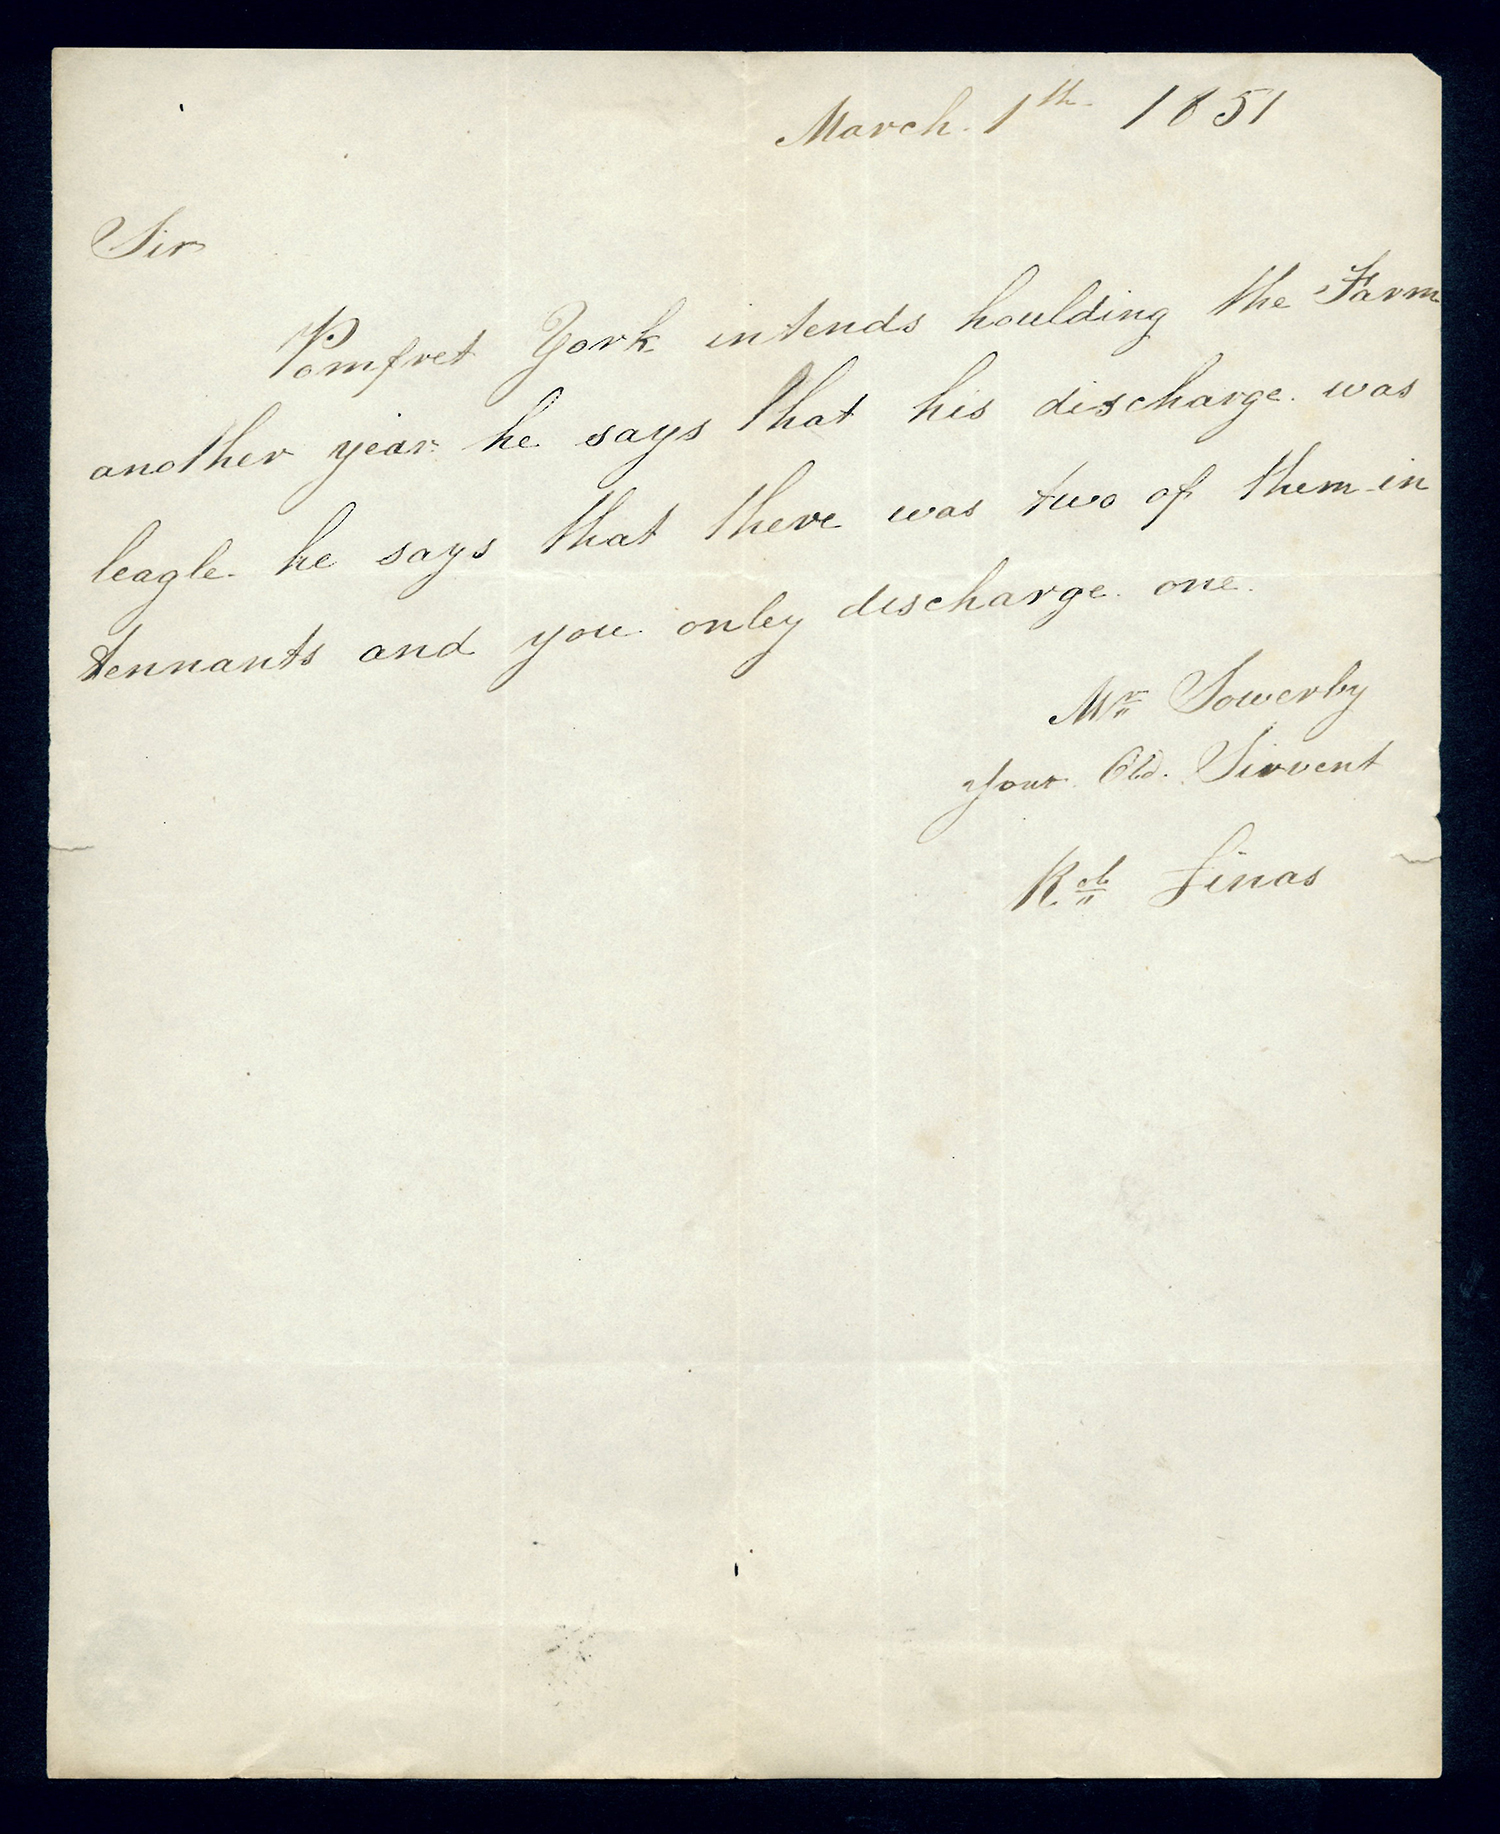 March. 1th 1851
Sir
Pomfret York intends houlding the Farm
another year he says that his discharge. was
leagle. he says that there was two of them in
tennants and you onley discharge. one.
Mr Sowerby
your Obd. Sirvent
Rob